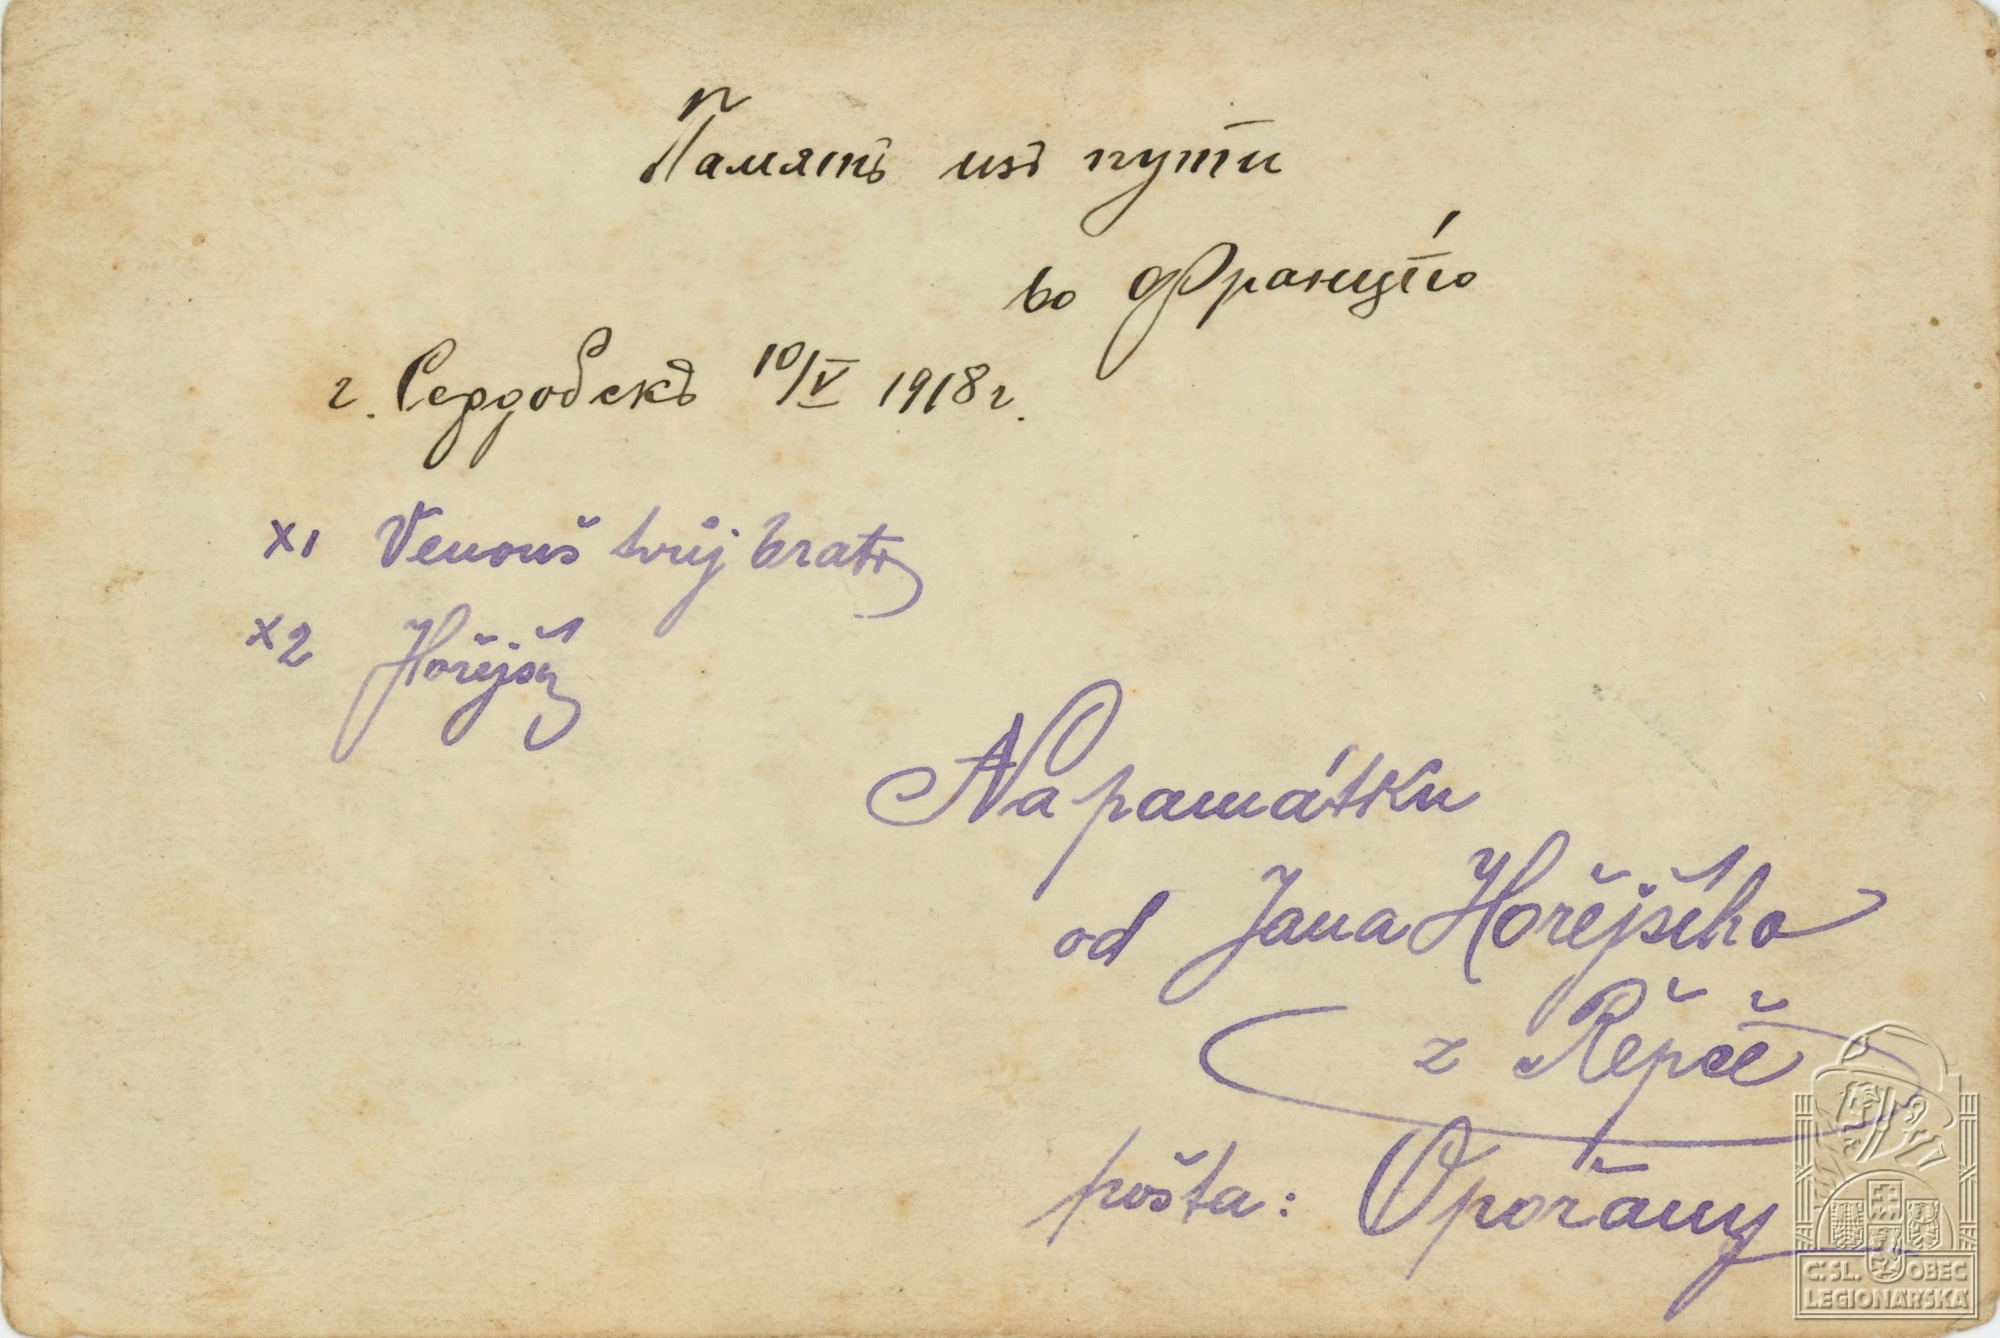 Память изъ пути
во Францію
г. Сердобскъ 10/V 1918 г.
x1 Venouš tvůj bratr
x2 Hořejší
Na památku
od Jana Hořejšího
z Řepče
pošta: Opořany
Č. SL. OBEC
LEGIONÁŘSKÁ